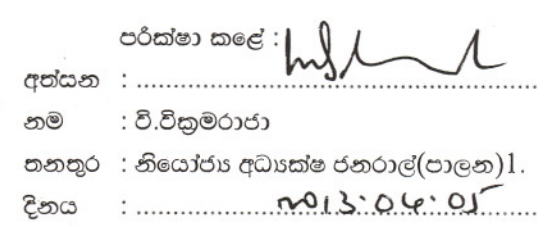 පරික්ෂා කළේ :
අත්සන : ..........................................................
නම : වි.වික්‍රමරාජා
තනතුර : නියෝජ්‍ය අධ්‍යක්ෂ ජනරාල්(පාලන)1.
දිනය : .................2013.04.05.......